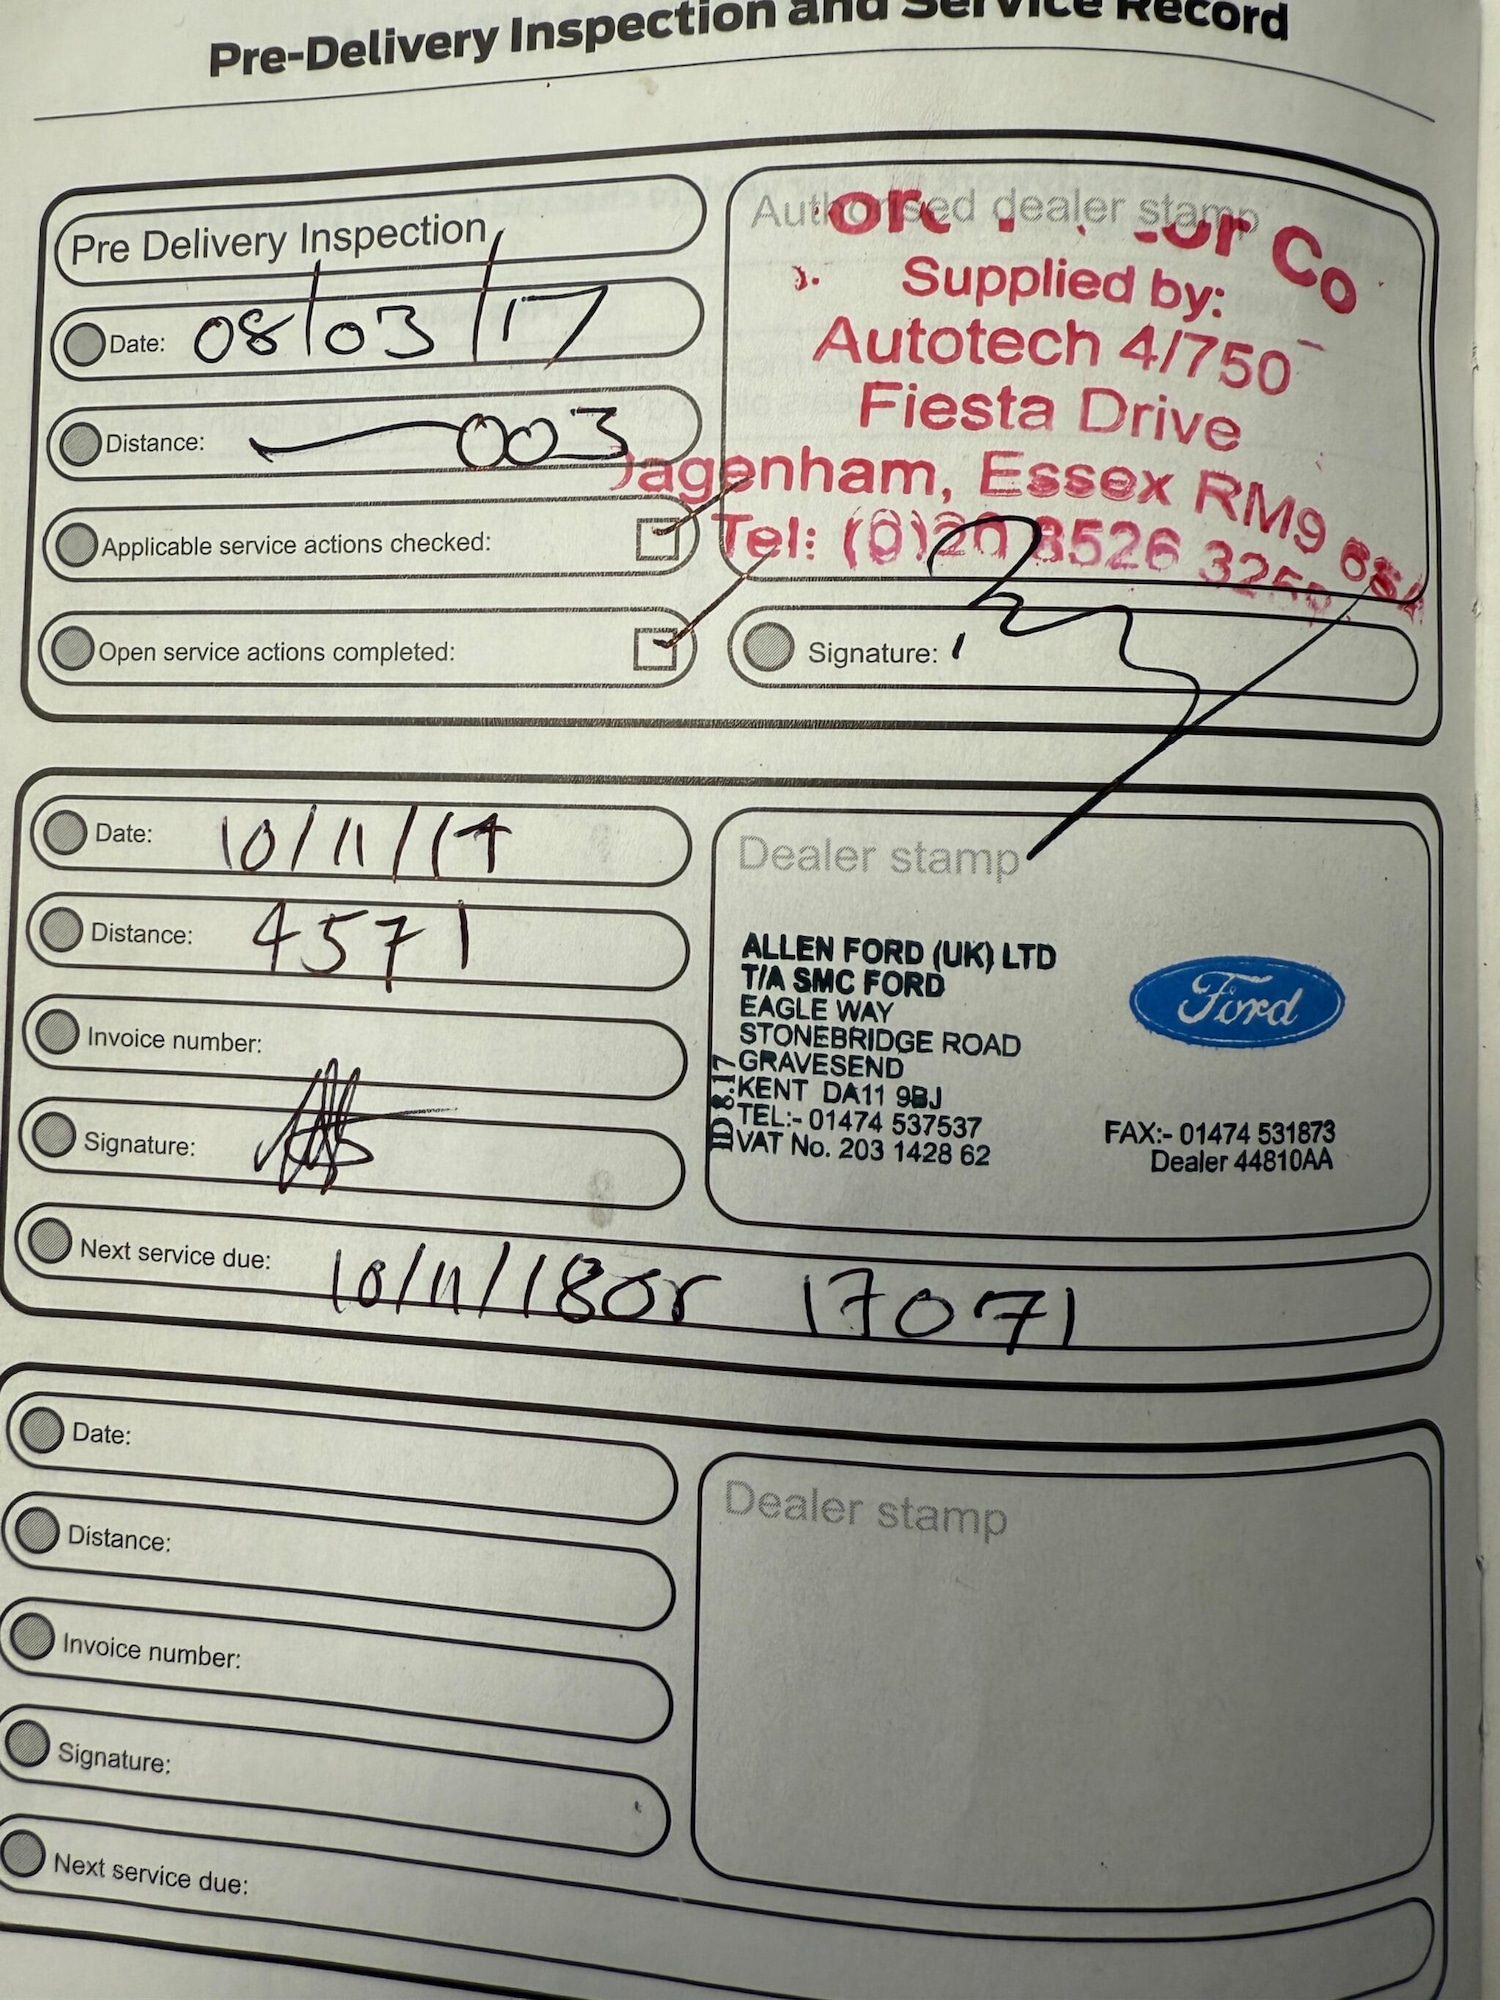 Pre-Delivery Inspection and Service Record
Pre Delivery Inspection
Date: 08/03/17
Distance: 003
Applicable service actions checked:
Open service actions completed:
Authorised dealer stamp
Co
Supplied by:
Autotech 4/750
Fiesta Drive
Dagenham, Essex RM9 6SA
Tel: (0)20 8526
Signature:
Date: 10/11/17
Distance: 4571
Invoice number:
Signature:
Next service due: 10/11/18 or 17071
Dealer stamp
ALLEN FORD (UK) LTD
T/A SMC FORD
EAGLE WAY
STONEBRIDGE ROAD
GRAVESEND
KENT DA11 9BJ
TEL:- 01474 537537
VAT No. 203 1428 62
ID 8.17
Ford
FAX:- 01474 531873
Dealer 44810AA
Date:
Distance:
Invoice number:
Signature:
Next service due:
Dealer stamp